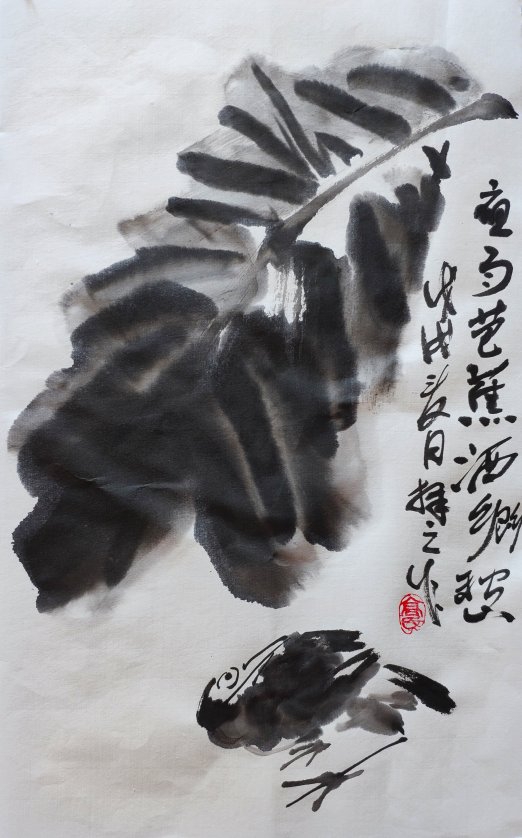 夜雨芭蕉洒鄉愁
戊戌夏月择之作